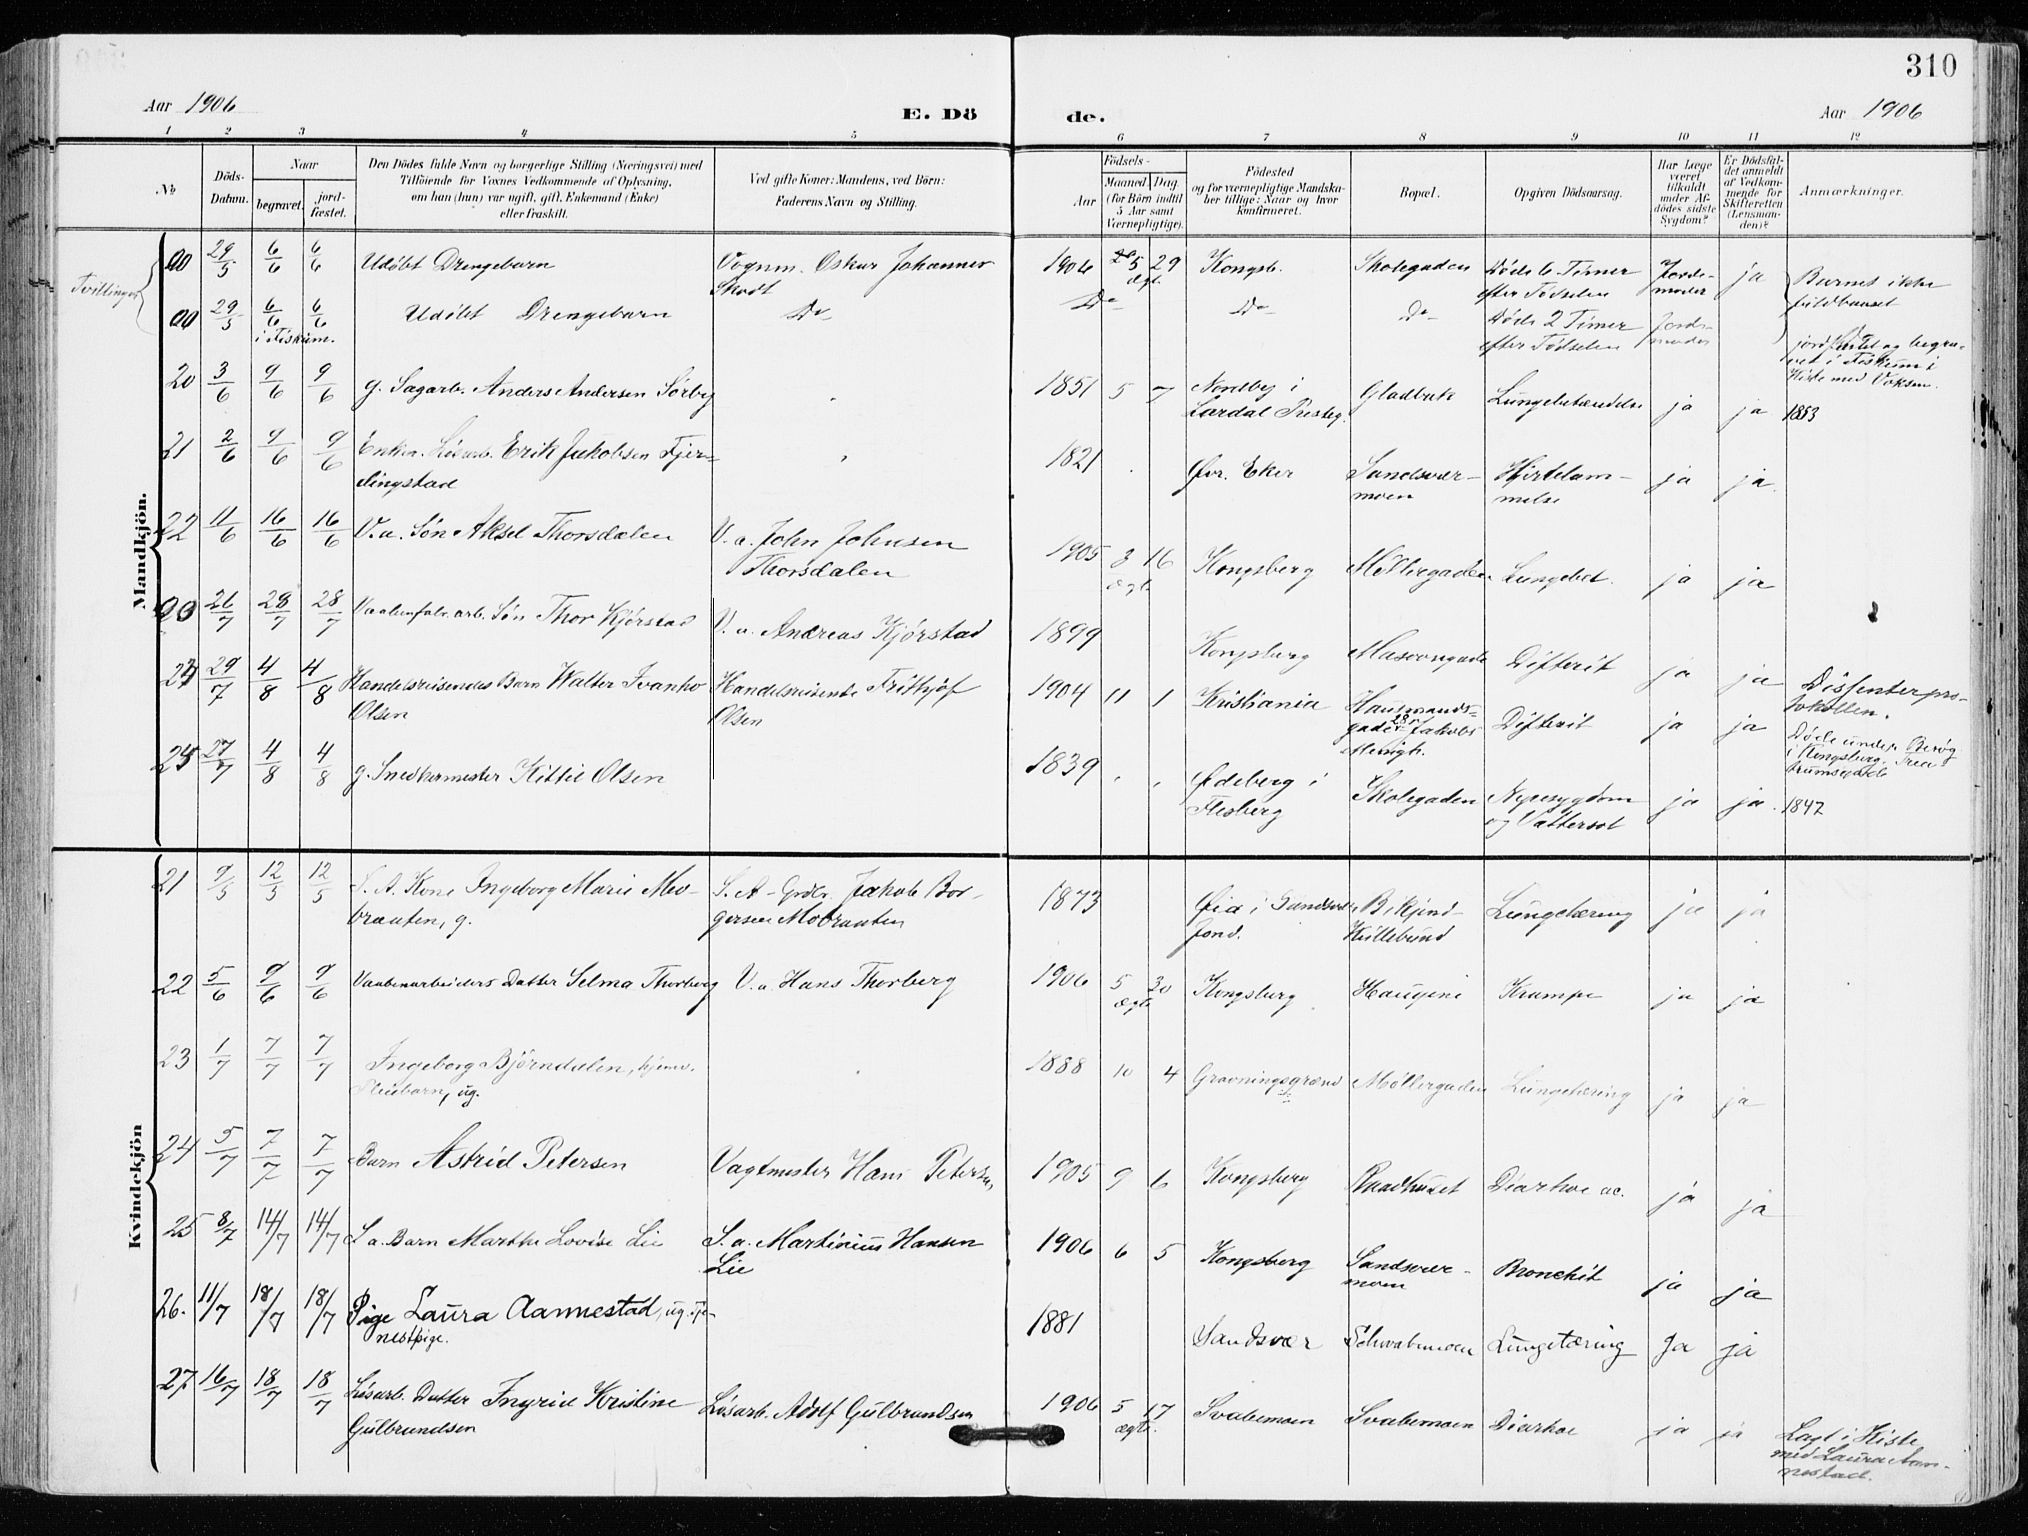 310
Aar 1906
E. Dö
de.
Aar 1906
1 2 3 4 5 6 7 8 9 10 11 12
No
Döds-
Datum.
Naar
begravet.
jord-
fæstet.
Den Dödes fulde Navn og borgerlige Stilling (Næringsvei) med
Tilföiende for Voxnes Vedkommende af Oplysning,
om han (hun) var ugift, gift, Enkemand (Enke)
eller fraskilt.
Ved gifte Koner: Mandens, ved Börn:
Faderens Navn og Stilling.
Födsels-
Aar
Maaned, Dag.
(for Börn indtil
5 Aar samt
Værnepligtige).
Födested
og for værnepligtige Mandska-
ber tillige: Naar og hvor
konfirmeret.
Bopæl.
Opgiven Dödsaarsag.
Har Læge
været
tilkaldt
under Af-
dödes sidste
Sygdom?
Er Dödsfal-
det anmeldt
af Vedkom-
mende for
Skifteretten
(Lensman-
den)?
Anmærkninger.
Mandkjön.
Tvillinger
00 29/5 6/6 6/6 Udøbt Drengebarn Vognm. Oskar Johannes 1906 5 29 Kongsb. Skolegaden Døde 6 Timer Jorde- ja Barnet ikke
Skodt ægt. efter Fødselen moder
00 29/5 6/6 6/6 Udøbt Drengebarn Do Do Do Do Døde 2 Timer Jorde-
i Fiskum. efter Fødselen moder
jordfæstet og begra-
vet i Fiskum i
Kiste med Voksen.
20 3/6 9/6 9/6 g. Sagarb. Anders Andersen Sørby 1851 5 7 Nordby i Gladbak Lungebetændelse ja ja 1853
Lardal Presteg.
21 2/6 9/6 9/6 Enkem. Løsarb. Erik Jakobsen Fjer- 1821 Øvr. Eker Sandsvær- Hjertelam- ja ja
dingstad moen melse
22 11/6 16/6 16/6 V.a. Søn Aksel Thorsdalen V.a. John Johnsen 1905 3 16 Kongsberg Møllergaden Lungebet. ja ja
Thorsdalen ægte
23 26/7 28/7 28/7 Vaabenfabr.arb. Søn Thor Kjørstad V.a. Andreas Kjørstad 1899 Kongsberg Difterit ja ja
24 29/7 4/8 4/8 Handelsreisendes Barn Walter Ivanho Handelsreisende Frithjof 1904 11 1 Kristiania Hausmands- Difterit ja ja Dissenterpro-
Olsen Olsen gade 28 tokollen.
Døde under Besøg
i Kongsberg.
25 27/7 4/8 4/8 g. Snedkermester Kittil Olsen 1839 Ødeberg i Skolegaden Nyresygdom ja ja 1847
Flesberg og Vattersot
Kvindekjön
21 9/5 12/5 12/5 S.A. Kone Ingeborg Marie Mo- S.A - Grdbr. Jakob Bor- 1873 Lungetæring ja ja
braaten, g. gersen Mobraaten
22 5/6 9/6 9/6 Vaabenarbeiders Datter Selma Thorberg V.a. Hans Thorberg 1906 5 30 Kongsberg Haugene Krampe ja ja
ægte
23 1/7 7/7 7/7 Ingeborg Bjørndalen, hjemv. 1888 10 4 Gravningsgrænd Møllergaden Lungetæring ja ja
Pleiebarn, ug.
24 5/7 7/7 7/7 Barn Astrid Petersen Vagtmester Hans Petersen 1905 9 6 Kongsberg Raadhuset Diarhoe ac. ja ja
25 8/7 14/7 14/7 S.a. Barn Marthe Lovise Lie S.a. Martinius Hansen 1906 6 5 Kongsberg Sandsvær- Bronchit ja ja
Lie moen
26. 11/7 18/7 18/7 Pige Laura Aannestad, ug. Tje- 1881 Sandsvær Schwabemoen Lungetæring Ja ja
nestpige.
27 16/7 18/7 18/7 Løsarb. Datter Ingrid Kristine Løsarb. Adolf Gulbrandsen 1906 5 17 Svabemoen Svabemoen Diarhoe ja ja Lagt i Kiste
Gulbrandsen ægte. med Laura Aan-
nestad.